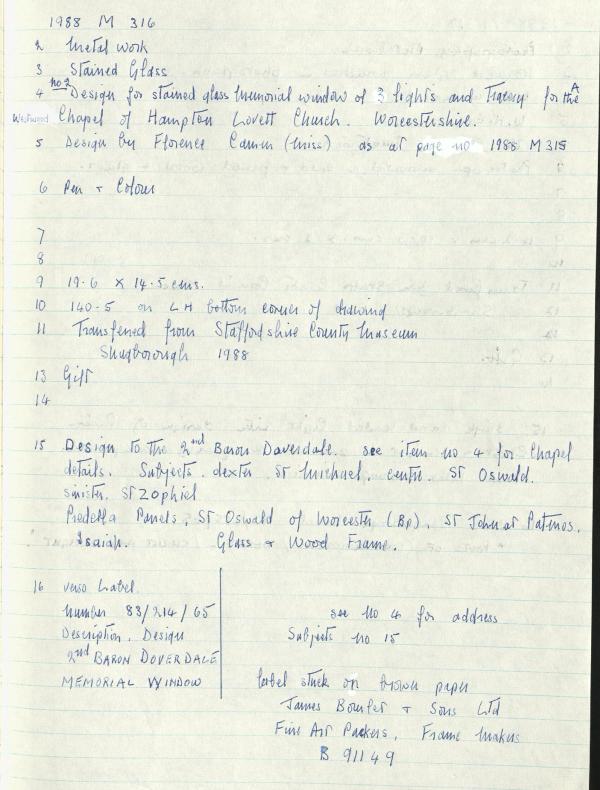 1988 M 316
2 Metal work
3 Stained Glass
4 no 2 Design for stained glass memorial window of 3 lights and Tracery for the A
Westwood Chapel of Hampton Lovett Church. Worcestershire.
5 Design by Florence Camm (Miss) as at page no 1988 M 315
6 Pen + Colour
7
8
9 19.6 x 14.5 cms.
10 140.5 on LH bottom corner of drawing
11 Transferred from Staffordshire County Museum
Shugborough 1988
13 Gift
14
15 Design to the 2nd Baron Doverdale. see item no 4 for Chapel
details. Subjects. dexter St Michael. centre. St Oswald.
sinister. St Zophiel
Predella Panels, St Oswald of Worcester (Bp). St John at Patmos.
Isaiah. Glass + Wood Frame.
16 verso Label.
Number 83/214/65
Description. Design
2nd BARON DOVERDALE
MEMORIAL WINDOW
see no 4 for address
Subjects no 15
label stuck on brown paper
James Bourlet + Sons Ltd
Fine Art Packers, Frame Makers
B 91149